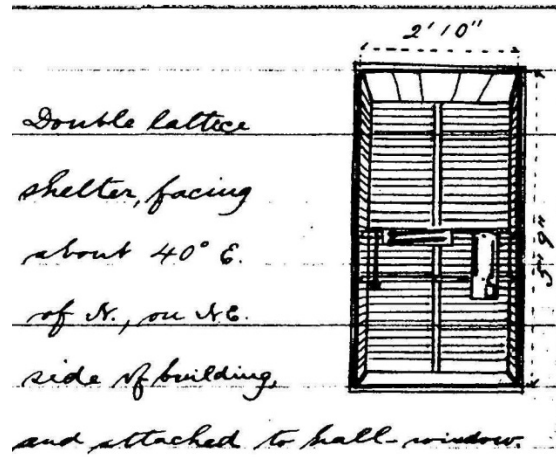 2' 10"
Double lattice
shelter, facing
about 40° E.
of N., on N.E.
side of building,
and attached to hall-window.
5' 9"